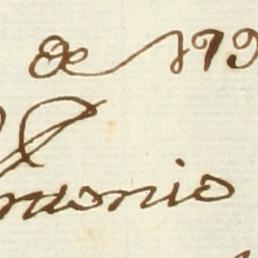 de 179
Antonio